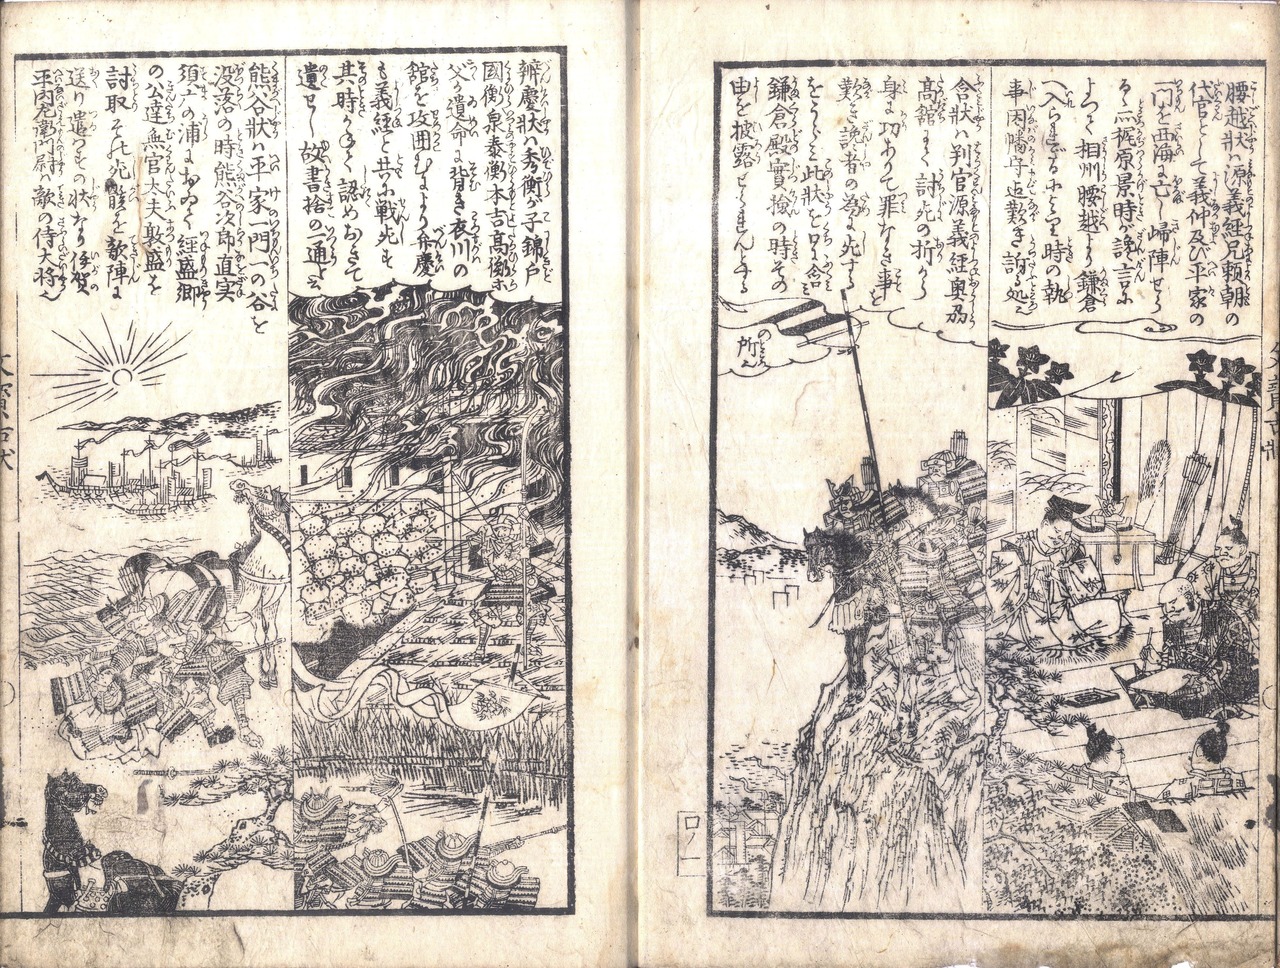 腰越狀ハ源義經兄頼朝の
代官として義仲及び平家の
一門を西海に亡し帰陣せら
るゝ処梶原景時が讒言に
よつて相州腰越より鎌倉
へ入られざるによりその時の執
事因幡守迄歎き訴る処也
含狀ハ判官源義經奥刕
髙舘にて討死の折から
身に功ありて罪なき事を
歎き讒者の為に死する
をうらみ此狀を口に含ミ
鎌倉殿實撿の時その
由を披露せられんとする
所也
辨慶狀ハ秀衡が子錦戸
国衡泉泰衡本吉髙衡ホ
父が遺命に背き衣川の
館を攻囲むより弁慶
も義經と共に戦死も
其時かねて認めおきて
遺せし故書捨の一通と云
熊谷狀ハ平家一門一の谷を
没落の時熊谷次郎直実
須广の浦において経盛卿
の公達無官太夫敦盛を
討取その死骸を敵陣に
送り遣るその状なり伊賀
平内左衛門尉ハ敵の侍大将也
口ノ一